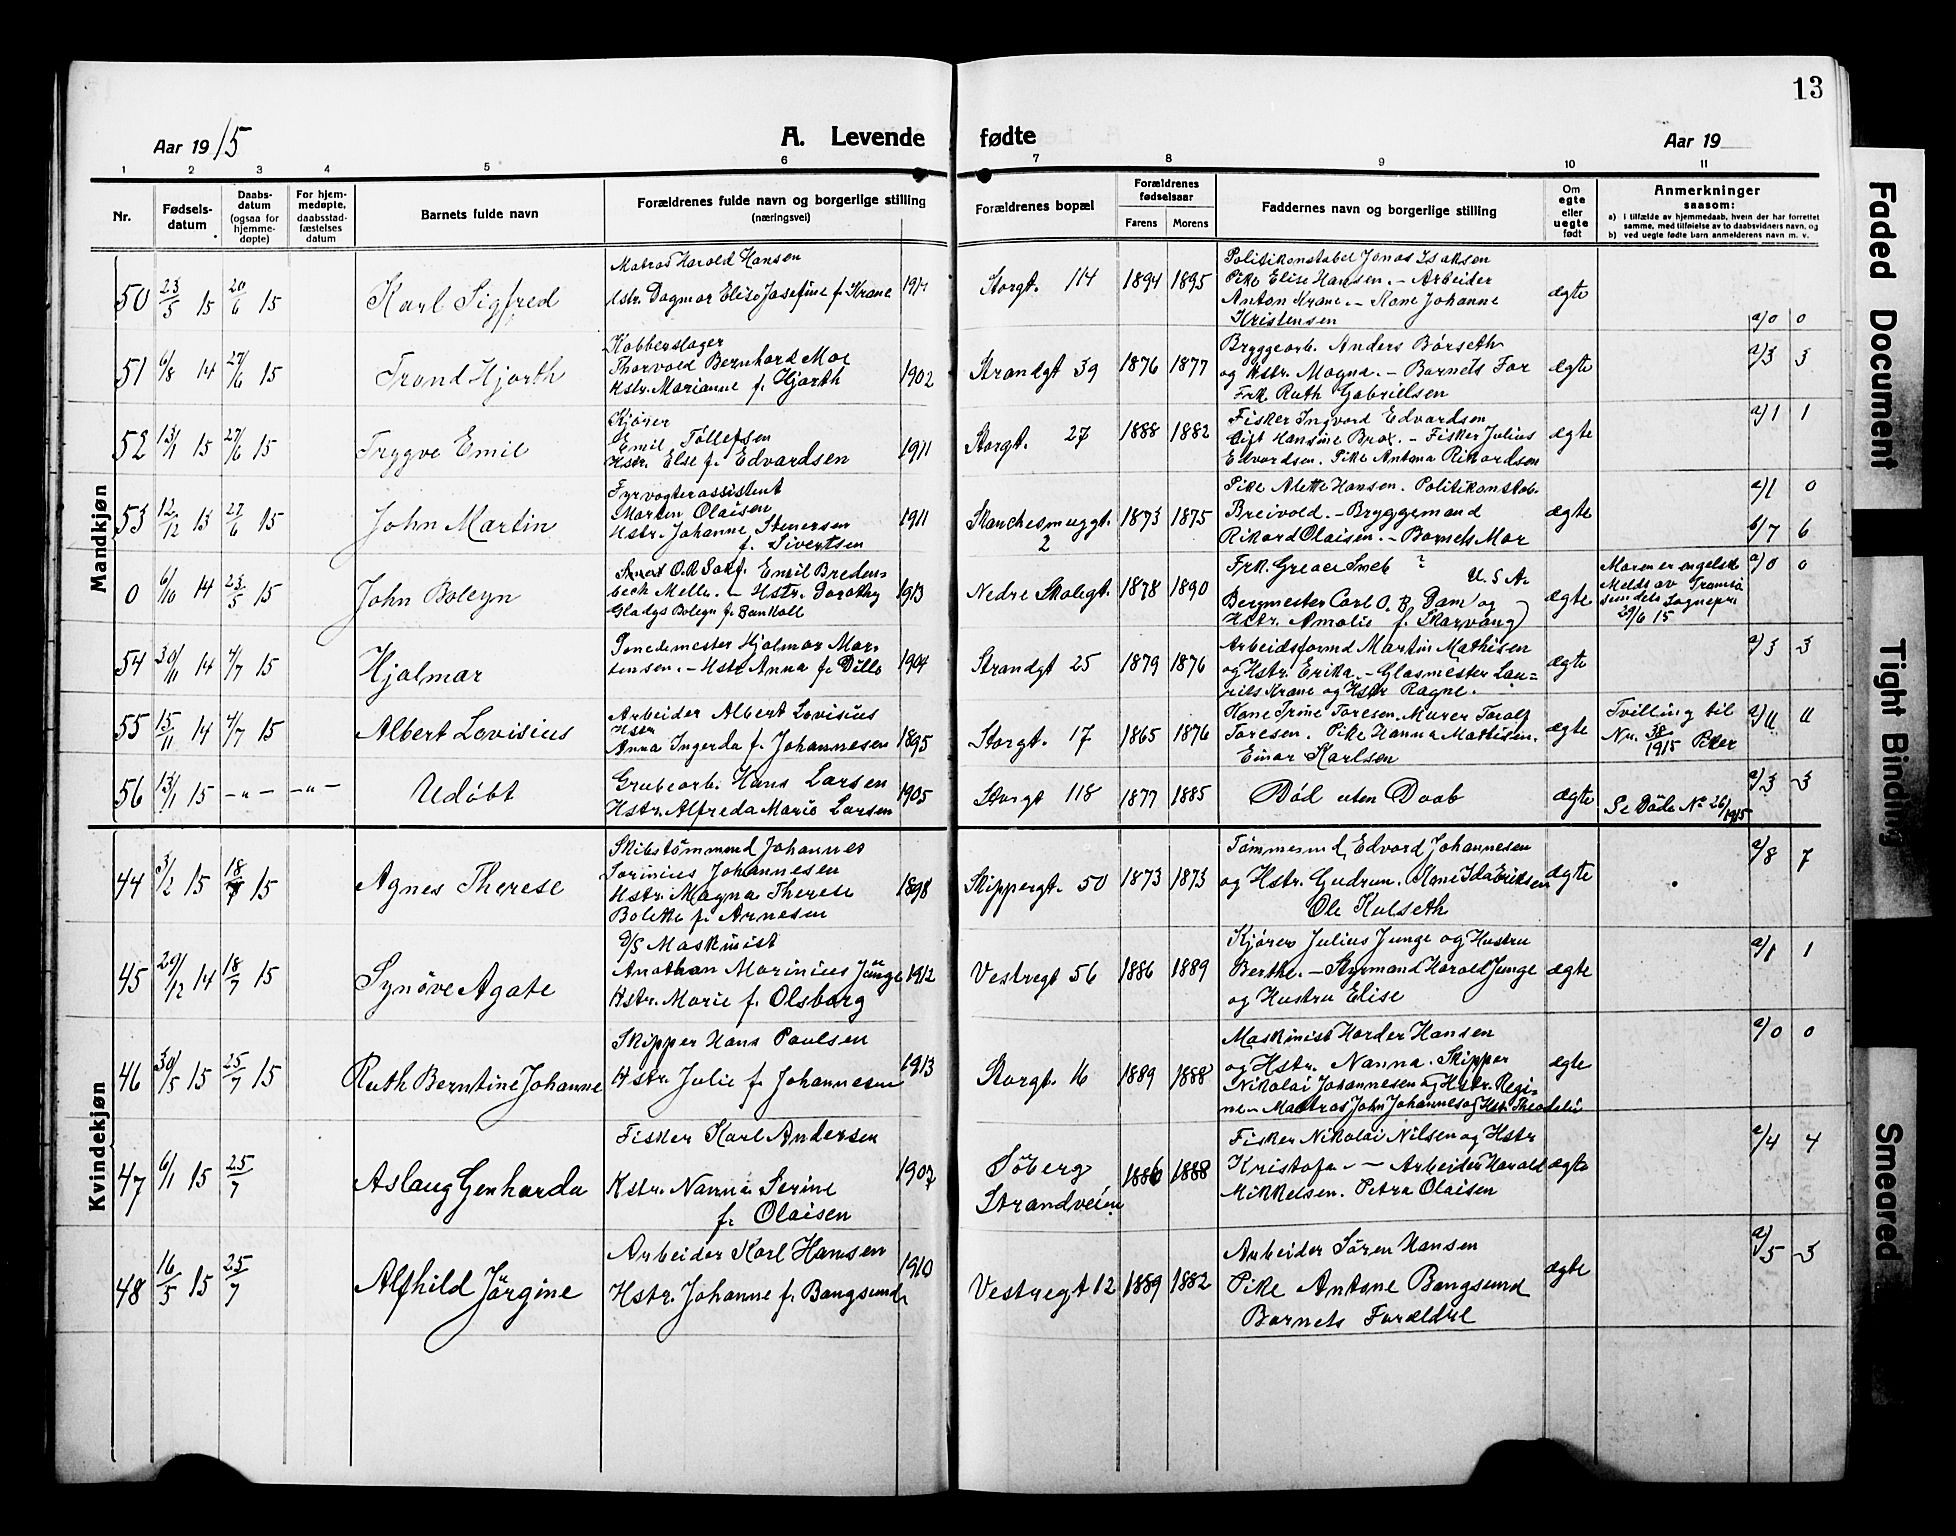 13
Aar 1915 A. Levende fødte Aar 19
1 2 3 4 5 6 7 8 9 10 11
Nr. Fødselsdatum Daabsdatum (ogsaa for hjemmedøpte) For hjemmedøpte, daabsstadfæstelses datum Barnets fulde navn Forældrenes fulde navn og borgerlige stilling (næringsvei) Forældrenes bopæl Forældrenes fødselsaar Farens Morens Faddernes navn og borgerlige stilling Om egte eller uegte født Anmerkninger saasom:
a) i tilfælde av hjemmedaab, hvem der har forrettet samme, med tilføielse av to daabsvidners navn, og
b) ved uegte fødte barn anmelderens navn m. v.
Mandkjøn
50 23/5 15 20/6 15 Karl Sigfred
Matros Harald Hansen
Hstr. Dagmar Elise Josefine f. Krane
Storgt. 114 1894 1895
Politikonstabel Jonas Isaksen
Pike Elise Hansen. – Arbeider
Anton Krane. – Kone Johanne
Kristensen
ægte a/0 0
51 6/8 14 27/6 15 Trond Hjorth
Kobberslager
Thorvald Bernhard Moe
Hstr. Marianne f. Hjorth 1902
Strandgt 39 1876 1877
Bryggearb. Anders Børseth
og Hstr. Magna. – Barnets Far
Frk Ruth Gabrielsen
ægte a/3 3
52 13/1 15 27/6 15 Trygve Emil
Kjører
Emil Tollefsen
Hstr. Else f. Edvardsen 1911
Storgt. 27 1888 1882
Fisker Ingvard Edvardsen
Gift Hansine Brox. – Fisker Julius
Edvardsen. Pike Antona Rikardsen
ægte a/1 1
53 12/12 13 27/6 15 John Martin
Fyrvogterassistent
Marten Olaisen
Hstr. Johanne Stenersen
f. Sivertsen 1911
Skanchesmuggt. 2 1873 1875
Pike Alette Hansen. Politikonstab.
Breivold. – Bryggemand
Rikard Olaisen. – Barnets Mor
ægte a/1 0
b/7 6
0 6/10 14 23/5 15 John Boleyn
Emil Bredenbech Melle. – Hstr. Dorothy
Gladys Boleyn f. 1913
Nedre Skolegt. 1878 1890
Frk. ? U.S.A.
Bergmester Carl O. B. Dam og
Hstr. Amalie f. Skarvang
ægte
Moren er engelsk
Meldt av Tromsøsundets Sognepr
29/6 15 a/0 0
54 30/11 14 4/7 15 Hjalmar
Hjalmar Mortensen. – Hstr Anna f. Dillo 1904
Strandgt 25 1879 1876
Arbeidsformd Martin Mathisen
og Hstr. Erika. – Glasmester Laurits Krane og Hstr Ragne.
ægte a/3 3
55 15/11 14 4/7 15 Albert Lovisius
Arbeider Albert Lovisius
Hstr
Anna Ingerda f. Johannesen 1895
Storgt. 17 1865 1876
Kone Trine Toresen. Murer Toralf
Toresen. Pike Hanna Mathisen.
Einar Karlsen
ægte
Tvilling til
Nr. 38/1915 Piker a/11 11
56 13/1 15 –"– –"– Udøbt
Grubearb. Hans Larsen
Hstr. Alfreda Marie Larsen 1905
Storgt 118 1877 1885
Død uten Daab
ægte Se Døde No 26/1915 a/3 3
Kvindekjøn
44 3/2 15 18/7 15 Agnes Therese
Skibstømmermd Johannes
Sorinius Johannesen
Hstr. Magna Therese
Bolette f. Arnesen 1898
Skippergt. 50 1873 1873
Tømmermd. Edvard Johannesen
og Hstr. Gudrun. Kone Ida Eriksen
Ole Kulseth
ægte a/8 7
45 29/12 14 18/7 15 Synøve Agate
D/S Maskinist
Anathan Marinius Junge
Hstr. Marie f. Olsborg 1912
Vestregt 56 1886 1889
Kjører Julius Junge og Hustru
Berthe. – Styrmand Harald Junge
og Hustru Elise
ægte a/1 1
46 30/5 15 25/7 15 Ruth Berntine Johanne
Skipper Hans Paulsen
Hstr. Julie f. Johannesen 1913
Storgt. 16 1889 1888
Maskinist Hansen
og Hstr. Nanna. Skipper
Nikolai Johannesen og Hstr. Regine – Matros John Johannes og Hstr.
ægte a/0 0
47 6/1 15 25/7 Aslaug Genharda
Fisker Karl Andersen
Hstr. Nanna Serine
f. Olaisen 1907
Søberg
Strandveien 1886 1888
Fisker Nikolai Nilsen og Hstr
Kristofa – – Arbeider Harald
Mikkelsen. Petra Olaisen
ægte a/4 4
48 16/5 15 25/7 Alfhild Jörgine
Arbeider Karl Hansen
Hstr. Johanne f. Bangsund 1910
Vestregt 12 1889 1882
Arbeider Søren Hansen
Pike Antone Bangsund
Barnets Forældre
ægte a/5 3
Faded Document
Tight Binding
Smeared